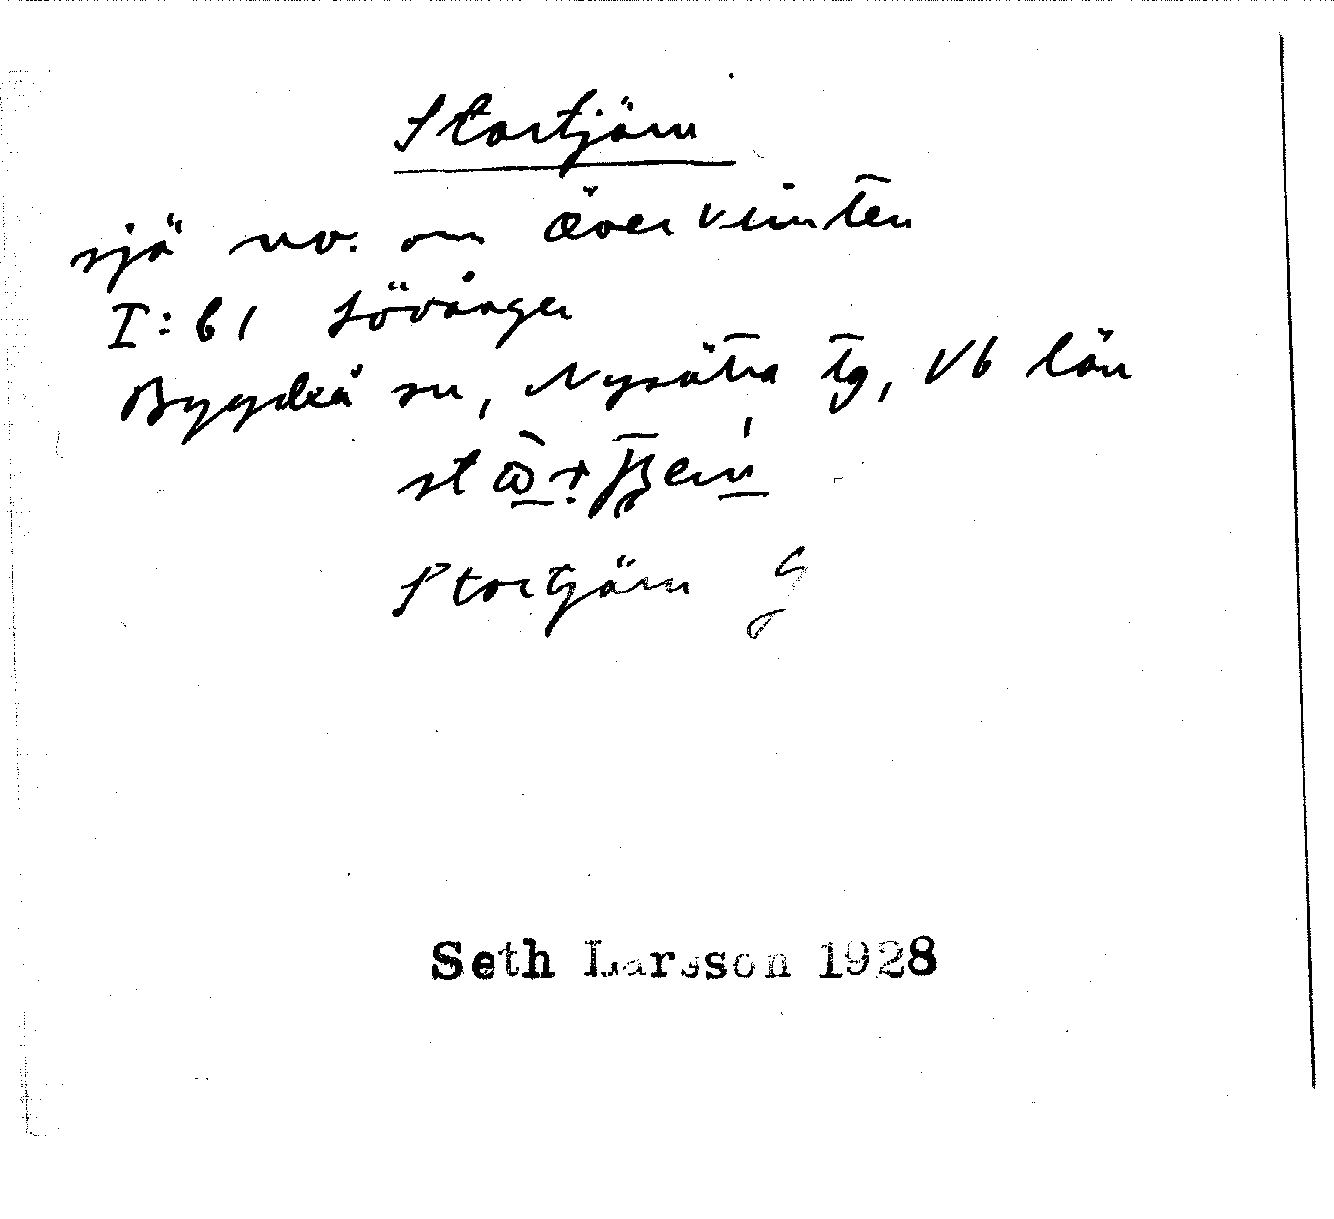 Stortjärn
sjö nv. om Överviinten
I: 61 Lövånger
Bygdeå sn, Nysätra tg, Vb län
Stortjärn G
Seth Larsson 1928